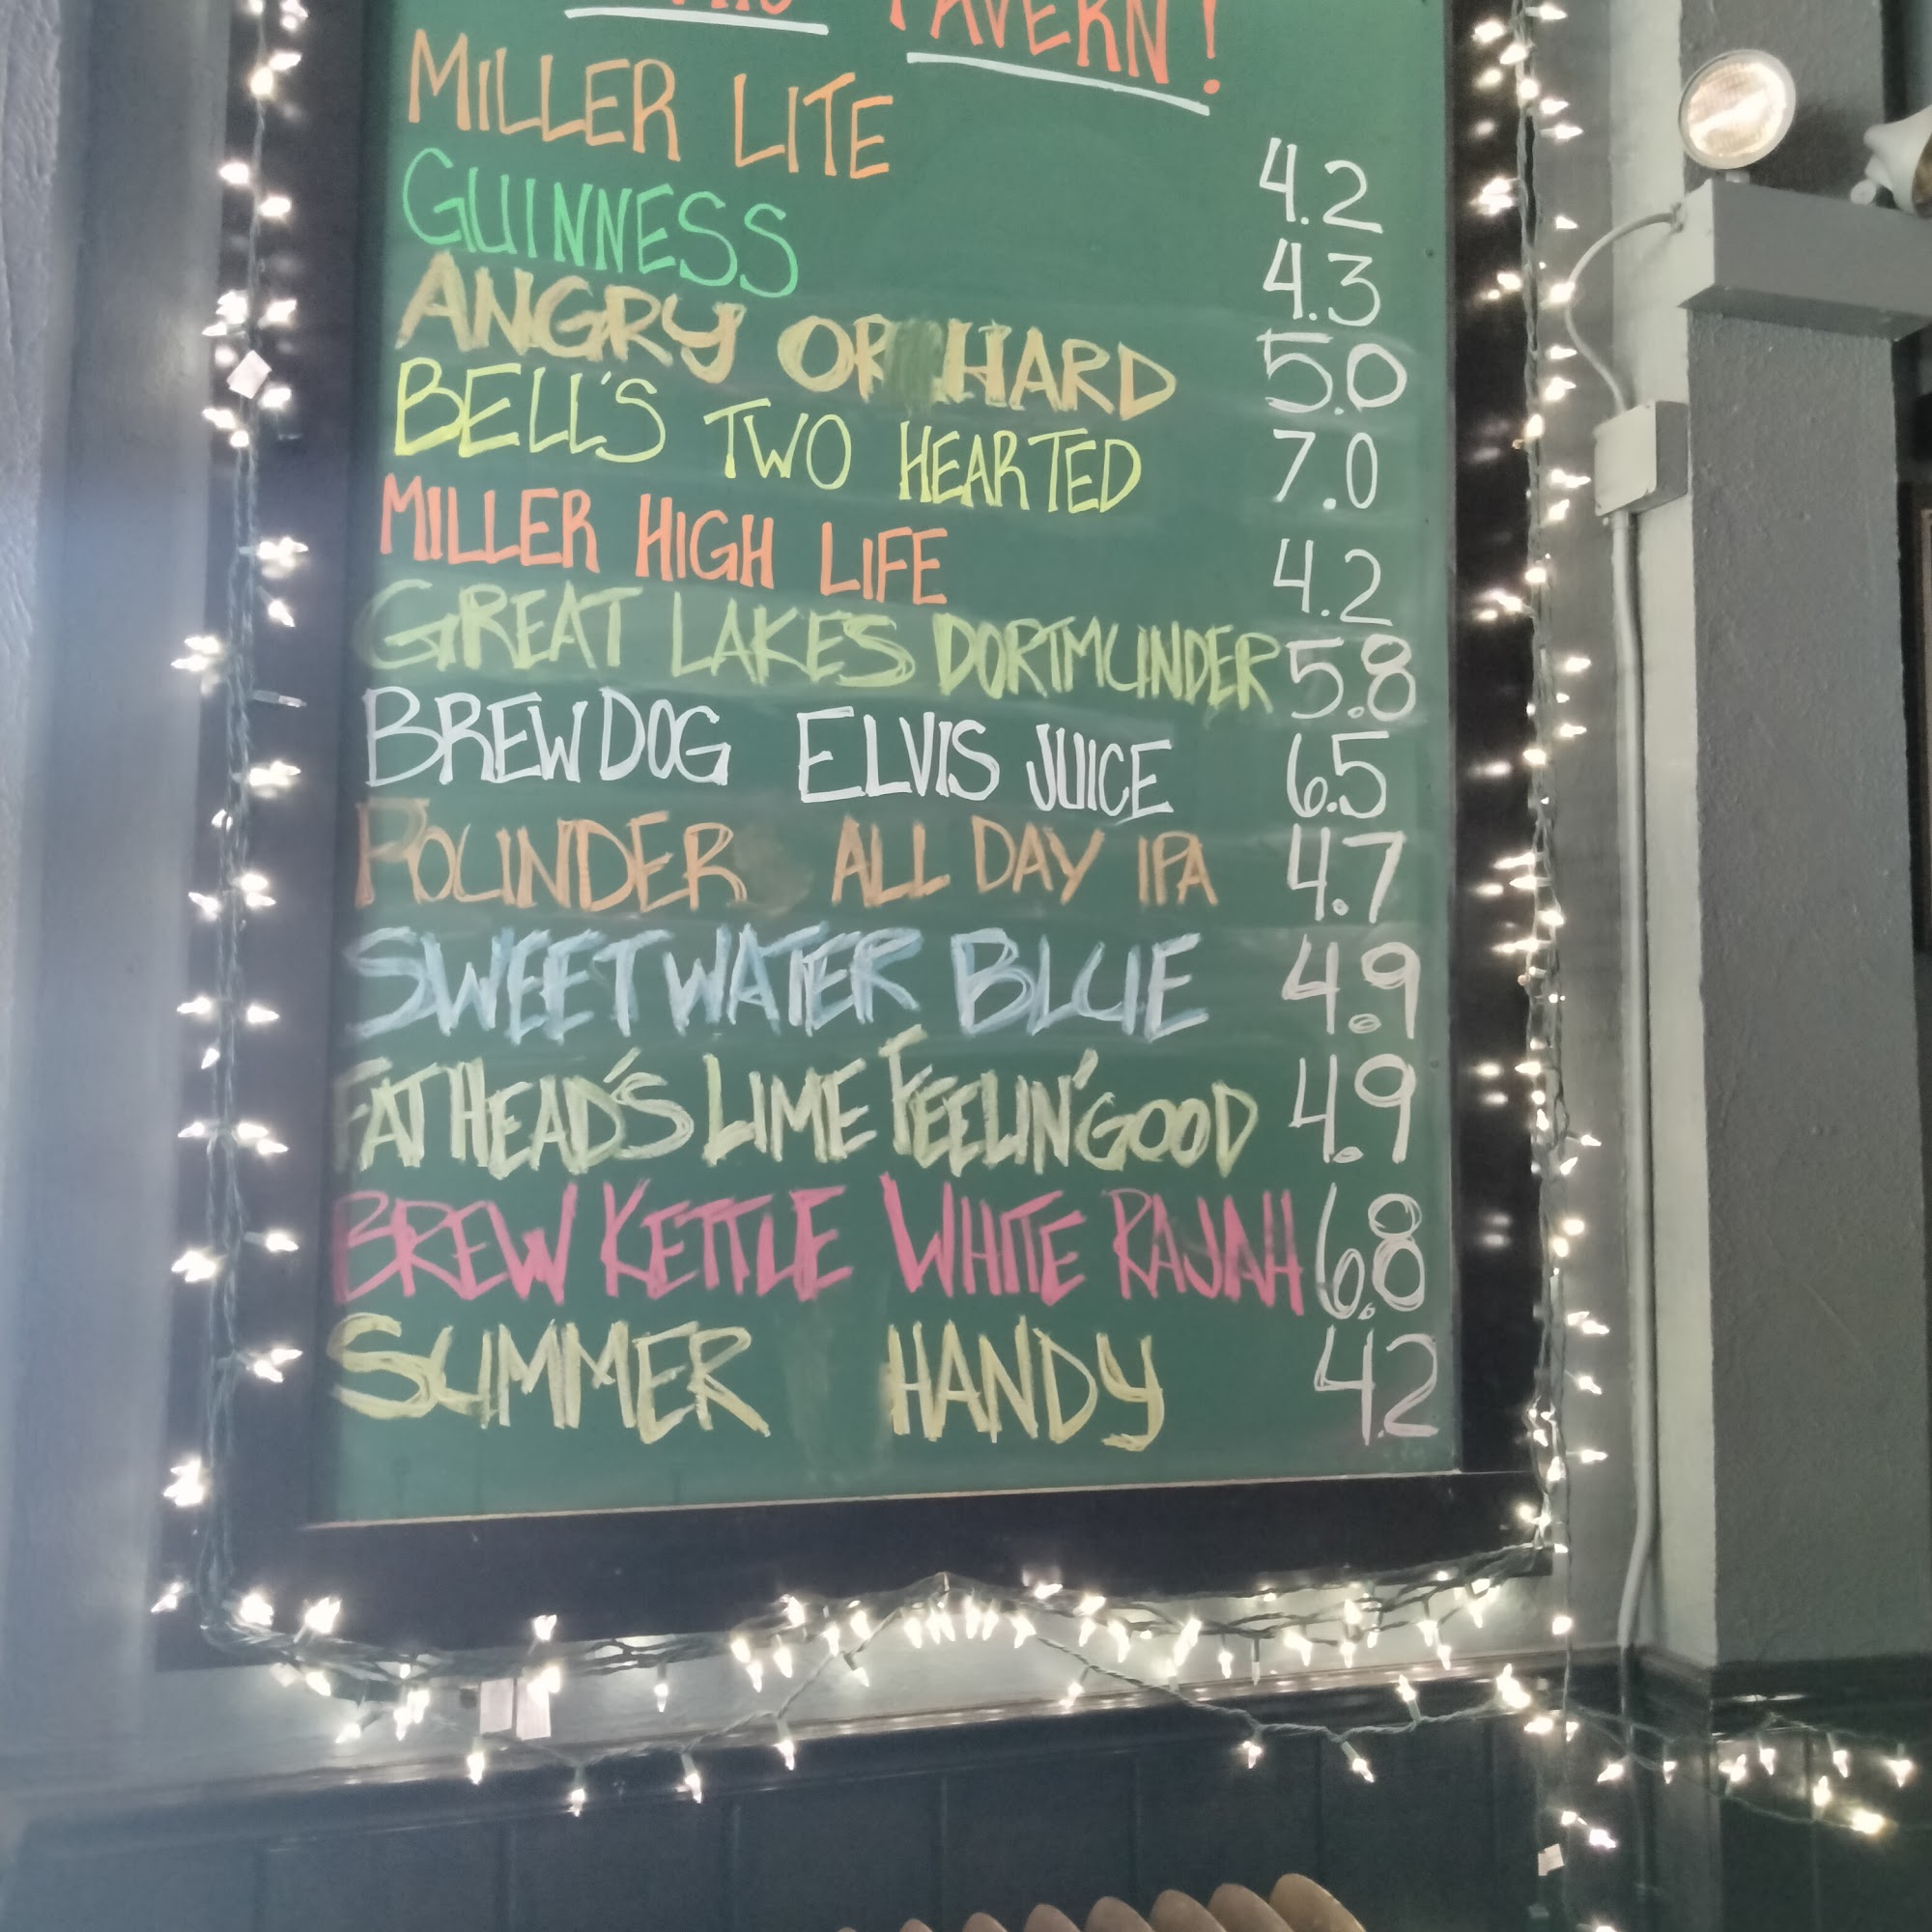 TAVERN!
MILLER LITE 4.2
GUINNESS 4.3
ANGRY OR HARD 5.0
BELL'S TWO HEARTED 7.0
MILLER HIGH LIFE 4.2
GREAT LAKES DORTMUNDER 5.8
BREWDOG ELVIS JUICE 6.5
POUNDER ALL DAY IPA 4.7
SWEETWATER BLUE 4.9
FATHEAD'S LIME FEELIN' GOOD 4.9
BREW KETTLE WHITE RAJAH 6.8
SUMMER HANDY 4.2